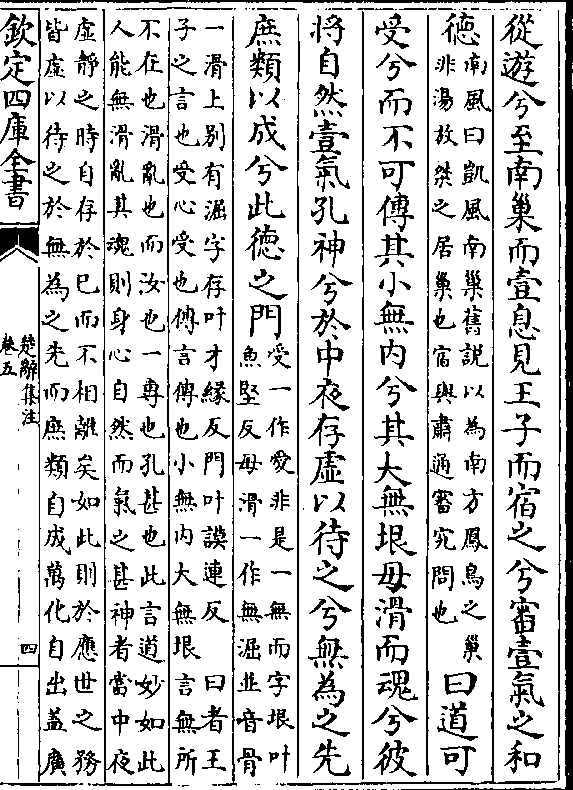 從遊兮至南巢而壹息見王子而宿之兮審壹氣之和
德南風曰凱風南巢舊說以為南方鳳鳥之巢
非湯放桀之居巢也宿與肅通審究問也
曰道可
受兮而不可傳其小無內兮其大無垠毋滑而魂兮彼
將自然壹氣孔神兮於中夜存虛以待之兮無為之先
庶類以成兮此德之門受一作愛非是一無而字垠叶
魚堅反毋滑一作無淈並音骨
一滑上别有淈字存叶才緣反門叶謨連反 曰者王
子之言也受心受也傳言傳也小無內大無垠言無所
不在也滑亂也而汝也一專也孔甚也此言道妙如此
人能無滑亂其魂則身心自然而氣之甚神者當中夜
虛靜之時自存於已而不相離矣如此則於應世之務
皆虛以待之於無為之先而庶類自成萬化自出葢廣
欽定四庫全書
楚辭集注
卷五
四